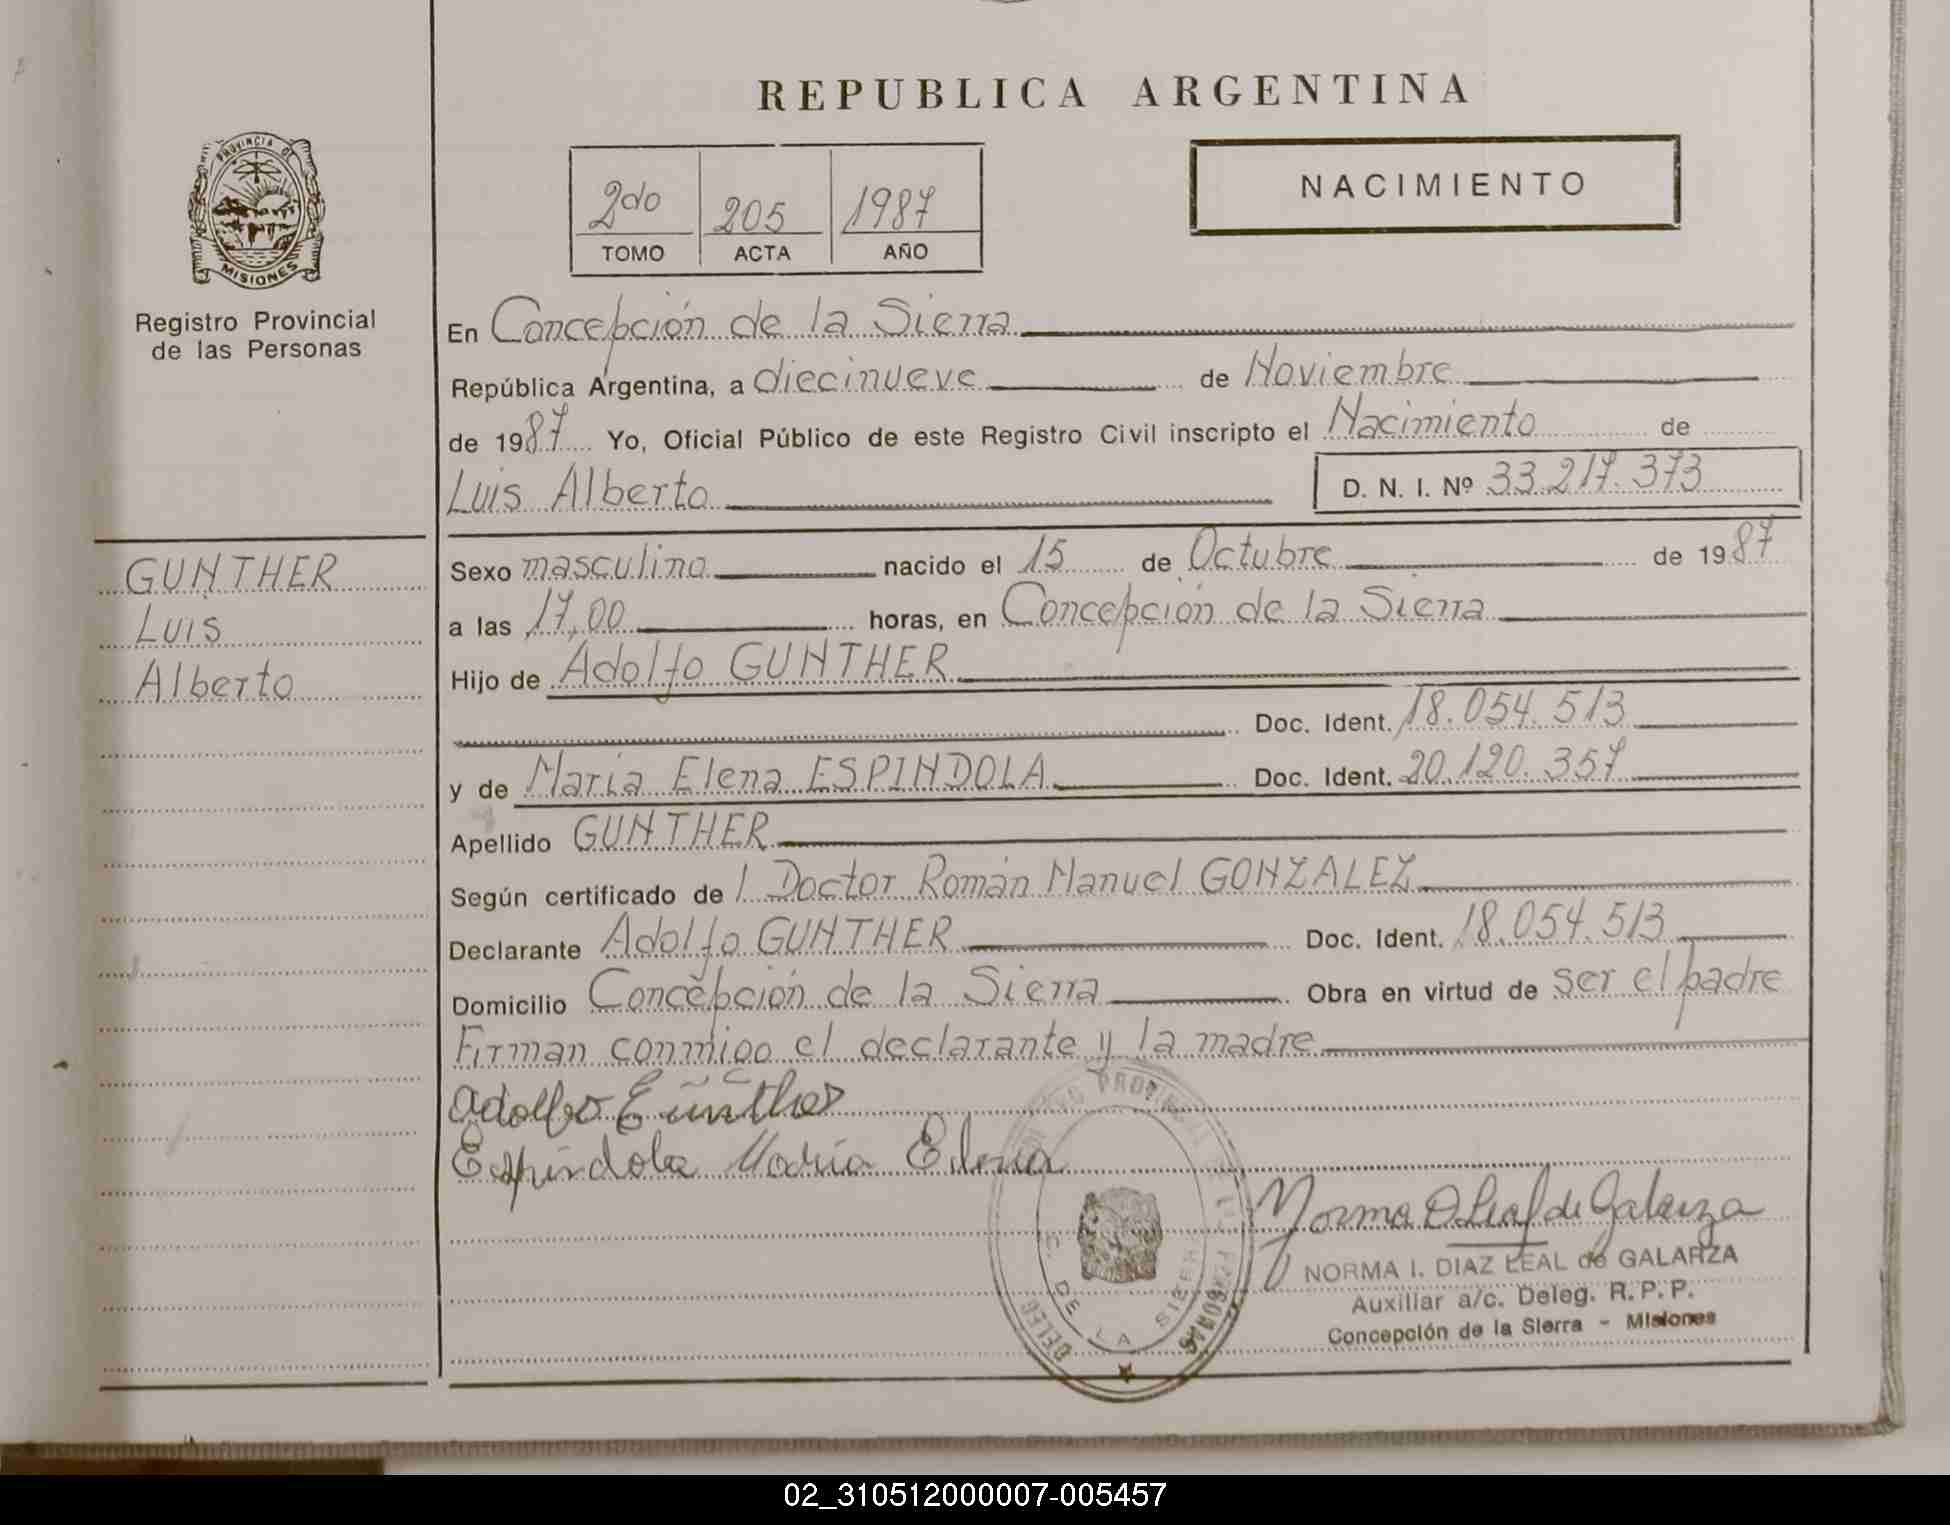 REPUBLICA ARGENTINA
PROVINCIA DE
MISIONES
Registro Provincial
de las Personas
2do 205 1987
TOMO ACTA AÑO
NACIMIENTO
En Concepción de la Sierra
República Argentina, a diecinueve de Noviembre
de 1987 Yo, Oficial Público de este Registro Civil inscripto el Nacimiento de
Luis Alberto D. N. I. Nº 33.217.373
GUNTHER
Luis
Alberto
Sexo masculino nacido el 15 de Octubre de 1987
a las 17,00 horas, en Concepción de la Sierra
Hijo de Adolfo GUNTHER
Doc. Ident. 18.054.513
y de Maria Elena ESPINDOLA Doc. Ident. 20.120.357
Apellido GUNTHER
Según certificado de l Doctor Román Manuel GONZALEZ
Declarante Adolfo GUNTHER Doc. Ident. 18.054.513
Domicilio Concepción de la Sierra Obra en virtud de ser el padre
Firman conmigo el declarante y la madre
Adolfo Günther
Espindola Maria Elena
DE LA SIERRA
Norma D Leal de Galarza
NORMA I. DIAZ LEAL de GALARZA
Auxiliar a/c. Deleg. R. P. P.
Concepción de la Sierra - Misiones
02_310512000007-005457